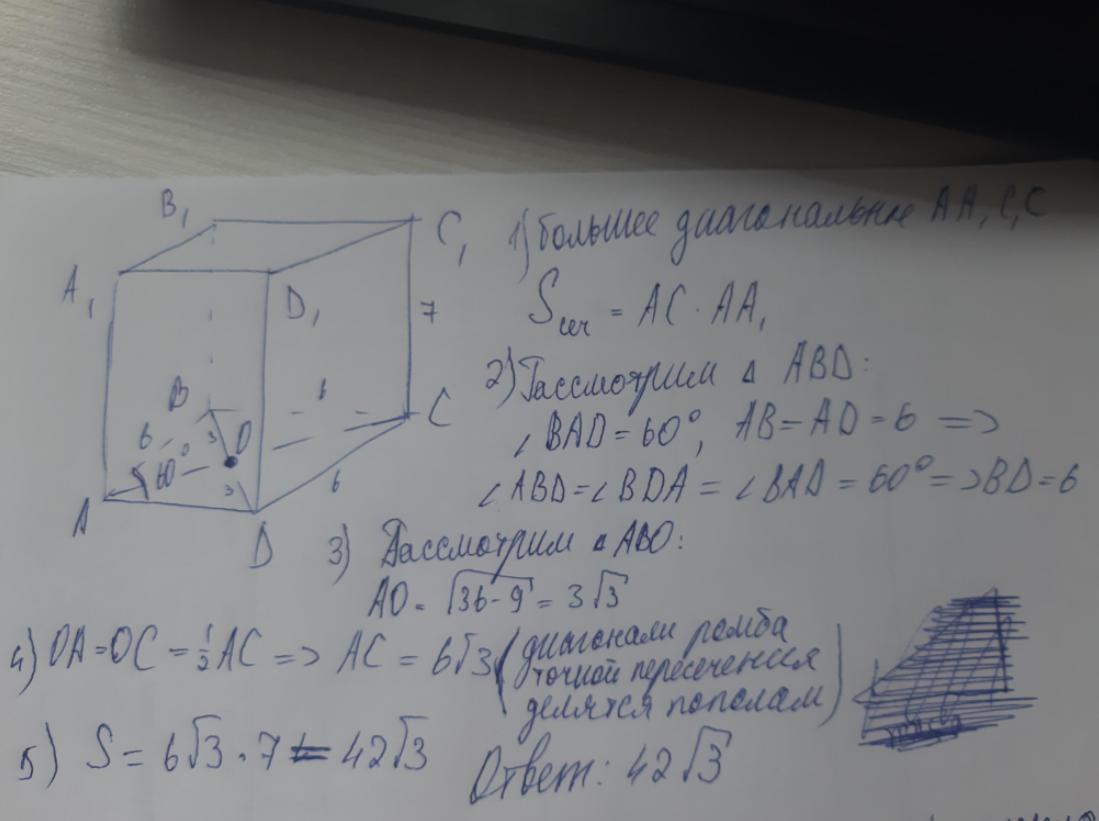 B₁
C₁
A₁
D₁
7
B
6
C
6
3
O
60°
3
6
A
D
1) большее диагональное AA₁C₁C
Sсеч = AC · AA₁
2) Рассмотрим Δ ABD:
∠BAD = 60°, AB = AD = 6 =>
∠ABD = ∠BDA = ∠BAD = 60° => BD = 6
3) Рассмотрим Δ ABO:
AO = √36-9 = 3√3
4) OA = OC = ½ AC => AC = 6√3 (диагонали ромба
точкой пересечения
делятся пополам)
5) S = 6√3 · 7 = 42√3
Ответ: 42√3